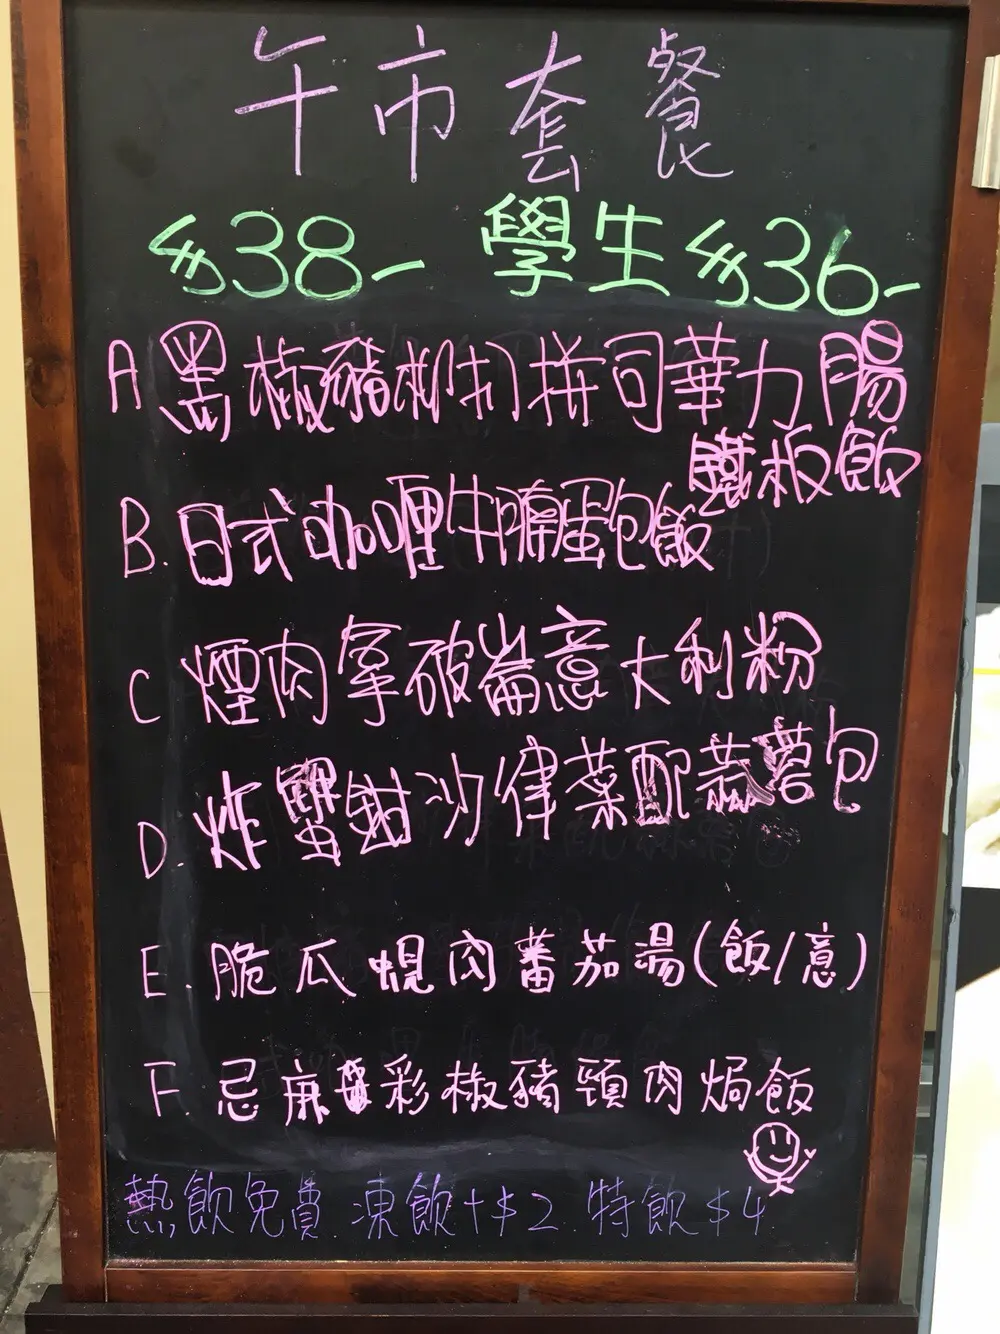 午市套餐
$38- 學生$36-
A 黑椒豬扒拼司華力腸
鐵板飯
B. 日式咖喱牛腩蛋包飯
C 煙肉拿破崙意大利粉
D. 炸蟹鉗沙律菜配蒜蓉包
E. 脆瓜 肉蕃茄湯(飯/意)
F. 忌廉 彩椒豬頸肉焗飯
熱飲免費 凍飲+$2 特飲$4